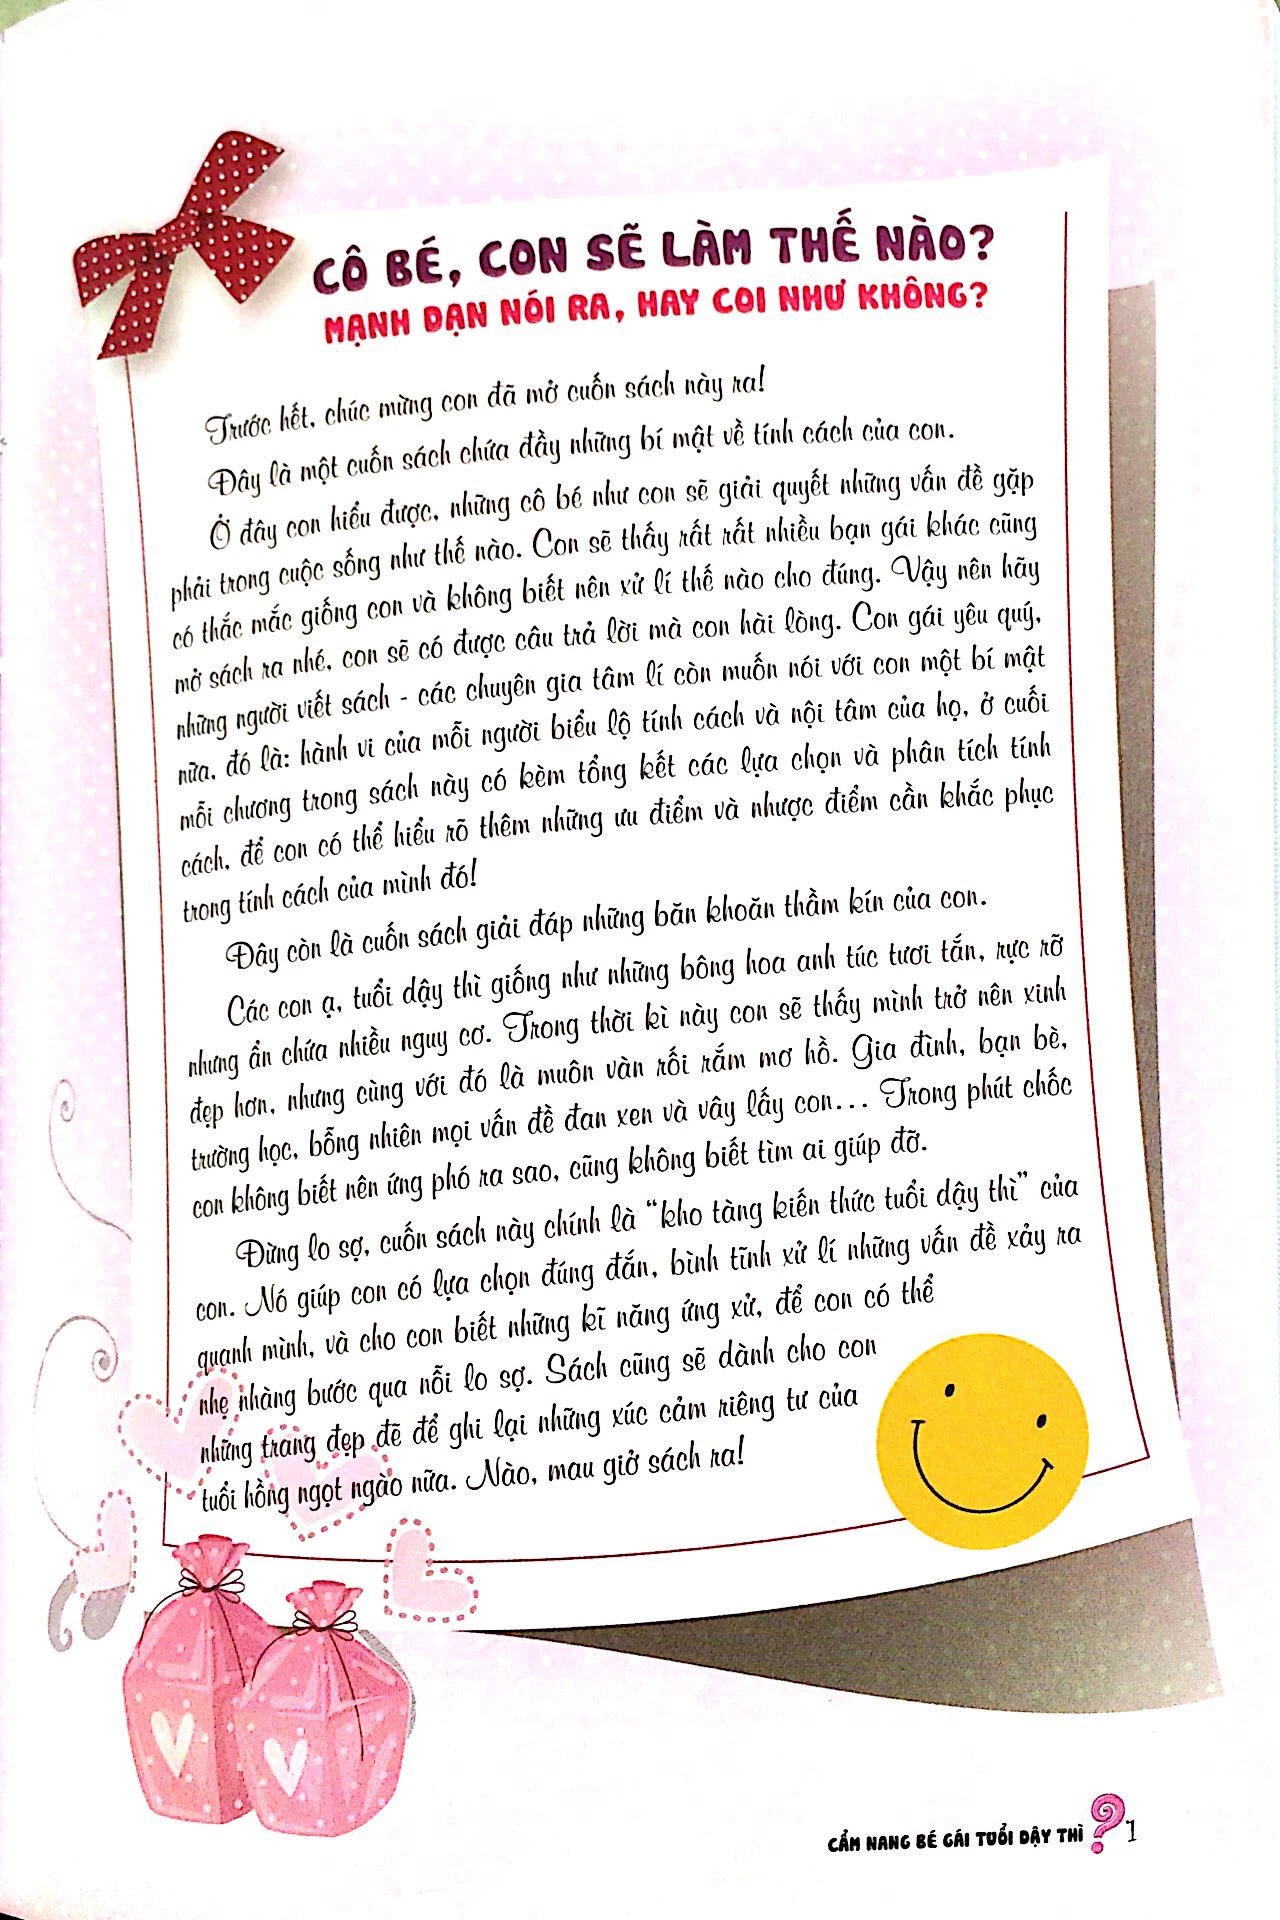 CÔ BÉ, CON SẼ LÀM THẾ NÀO?
MẠNH DẠN NÓI RA, HAY COI NHƯ KHÔNG?
Trước hết, chúc mừng con đã mở cuốn sách này ra!
Đây là một cuốn sách chứa đầy những bí mật về tính cách của con.
Ở đây con hiểu được, những cô bé như con sẽ giải quyết những vấn đề gặp
phải trong cuộc sống như thế nào. Con sẽ thấy rất rất nhiều bạn gái khác cũng
có thắc mắc giống con và không biết nên xử lí thế nào cho đúng. Vậy nên hãy
mở sách ra nhé, con sẽ có được câu trả lời mà con hài lòng. Con gái yêu quý,
những người viết sách - các chuyên gia tâm lí còn muốn nói với con một bí mật
nữa, đó là: hành vi của mỗi người biểu lộ tính cách và nội tâm của họ, ở cuối
mỗi chương trong sách này có kèm tổng kết các lựa chọn và phân tích tính
cách, để con có thể hiểu rõ thêm những ưu điểm và nhược điểm cần khắc phục
trong tính cách của mình đó!
Đây còn là cuốn sách giải đáp những băn khoăn thầm kín của con.
Các con ạ, tuổi dậy thì giống như những bông hoa anh túc tươi tắn, rực rỡ
nhưng ẩn chứa nhiều nguy cơ. Trong thời kì này con sẽ thấy mình trở nên xinh
đẹp hơn, nhưng cùng với đó là muôn vàn rối rắm mơ hồ. Gia đình, bạn bè,
trường học, bỗng nhiên mọi vấn đề đan xen và vây lấy con... Trong phút chốc
con không biết nên ứng phó ra sao, cũng không biết tìm ai giúp đỡ.
Đừng lo sợ, cuốn sách này chính là “kho tàng kiến thức tuổi dậy thì” của
con. Nó giúp con có lựa chọn đúng đắn, bình tĩnh xử lí những vấn đề xảy ra
quanh mình, và cho con biết những kĩ năng ứng xử, để con có thể
nhẹ nhàng bước qua nỗi lo sợ. Sách cũng sẽ dành cho con
những trang đẹp đẽ để ghi lại những xúc cảm riêng tư của
tuổi hồng ngọt ngào nữa. Nào, mau giở sách ra!
CẨM NANG BÉ GÁI TUỔI DẬY THÌ ? 1